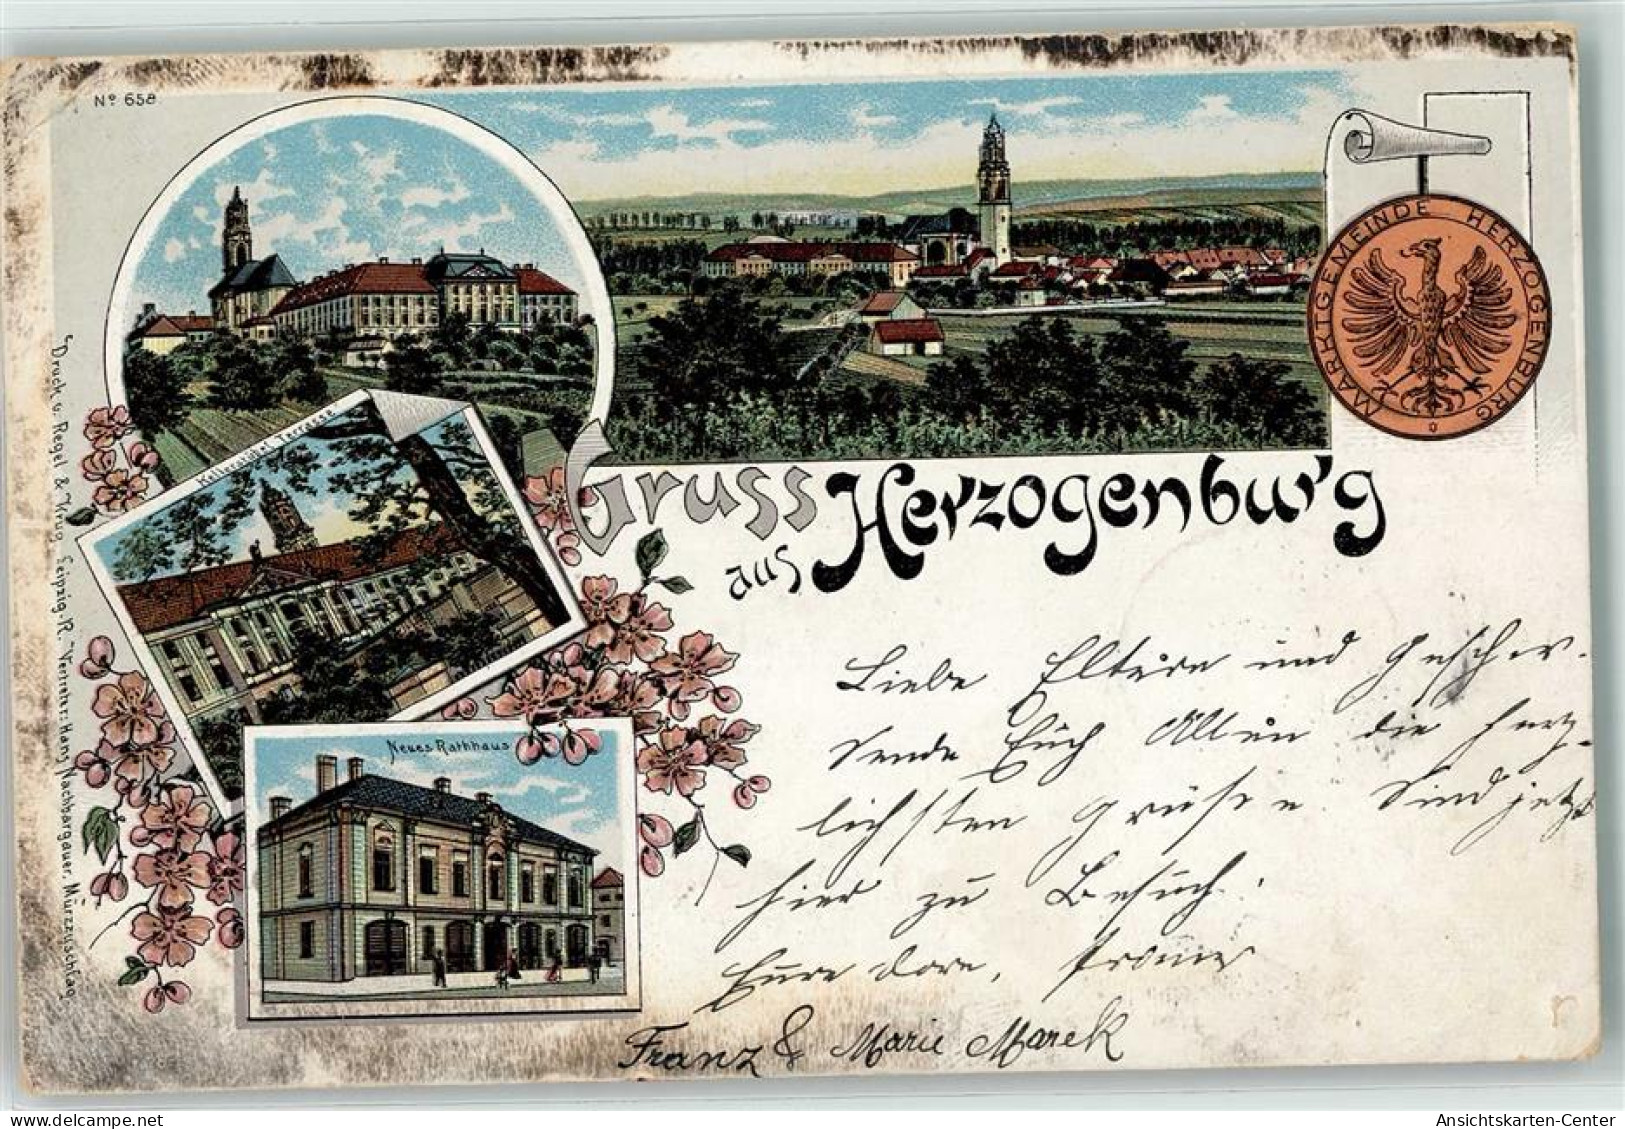 Nº 658
MARKTGEMEINDE HERZOGENBURG
Gruss
aus Herzogenburg
Neues Rathhaus
Druck v. Regel & Krug, Leipzig-R. Vertreter: Hans Nachbargauer, Mürzzuschlag
Liebe Eltern und Geschw.
Sende Euch Allen die herz-
lichsten Grüße. Sind jetzt
hier zu Besuch.
Eure
Franz & Marie Marek
Ansichtskarten-Center